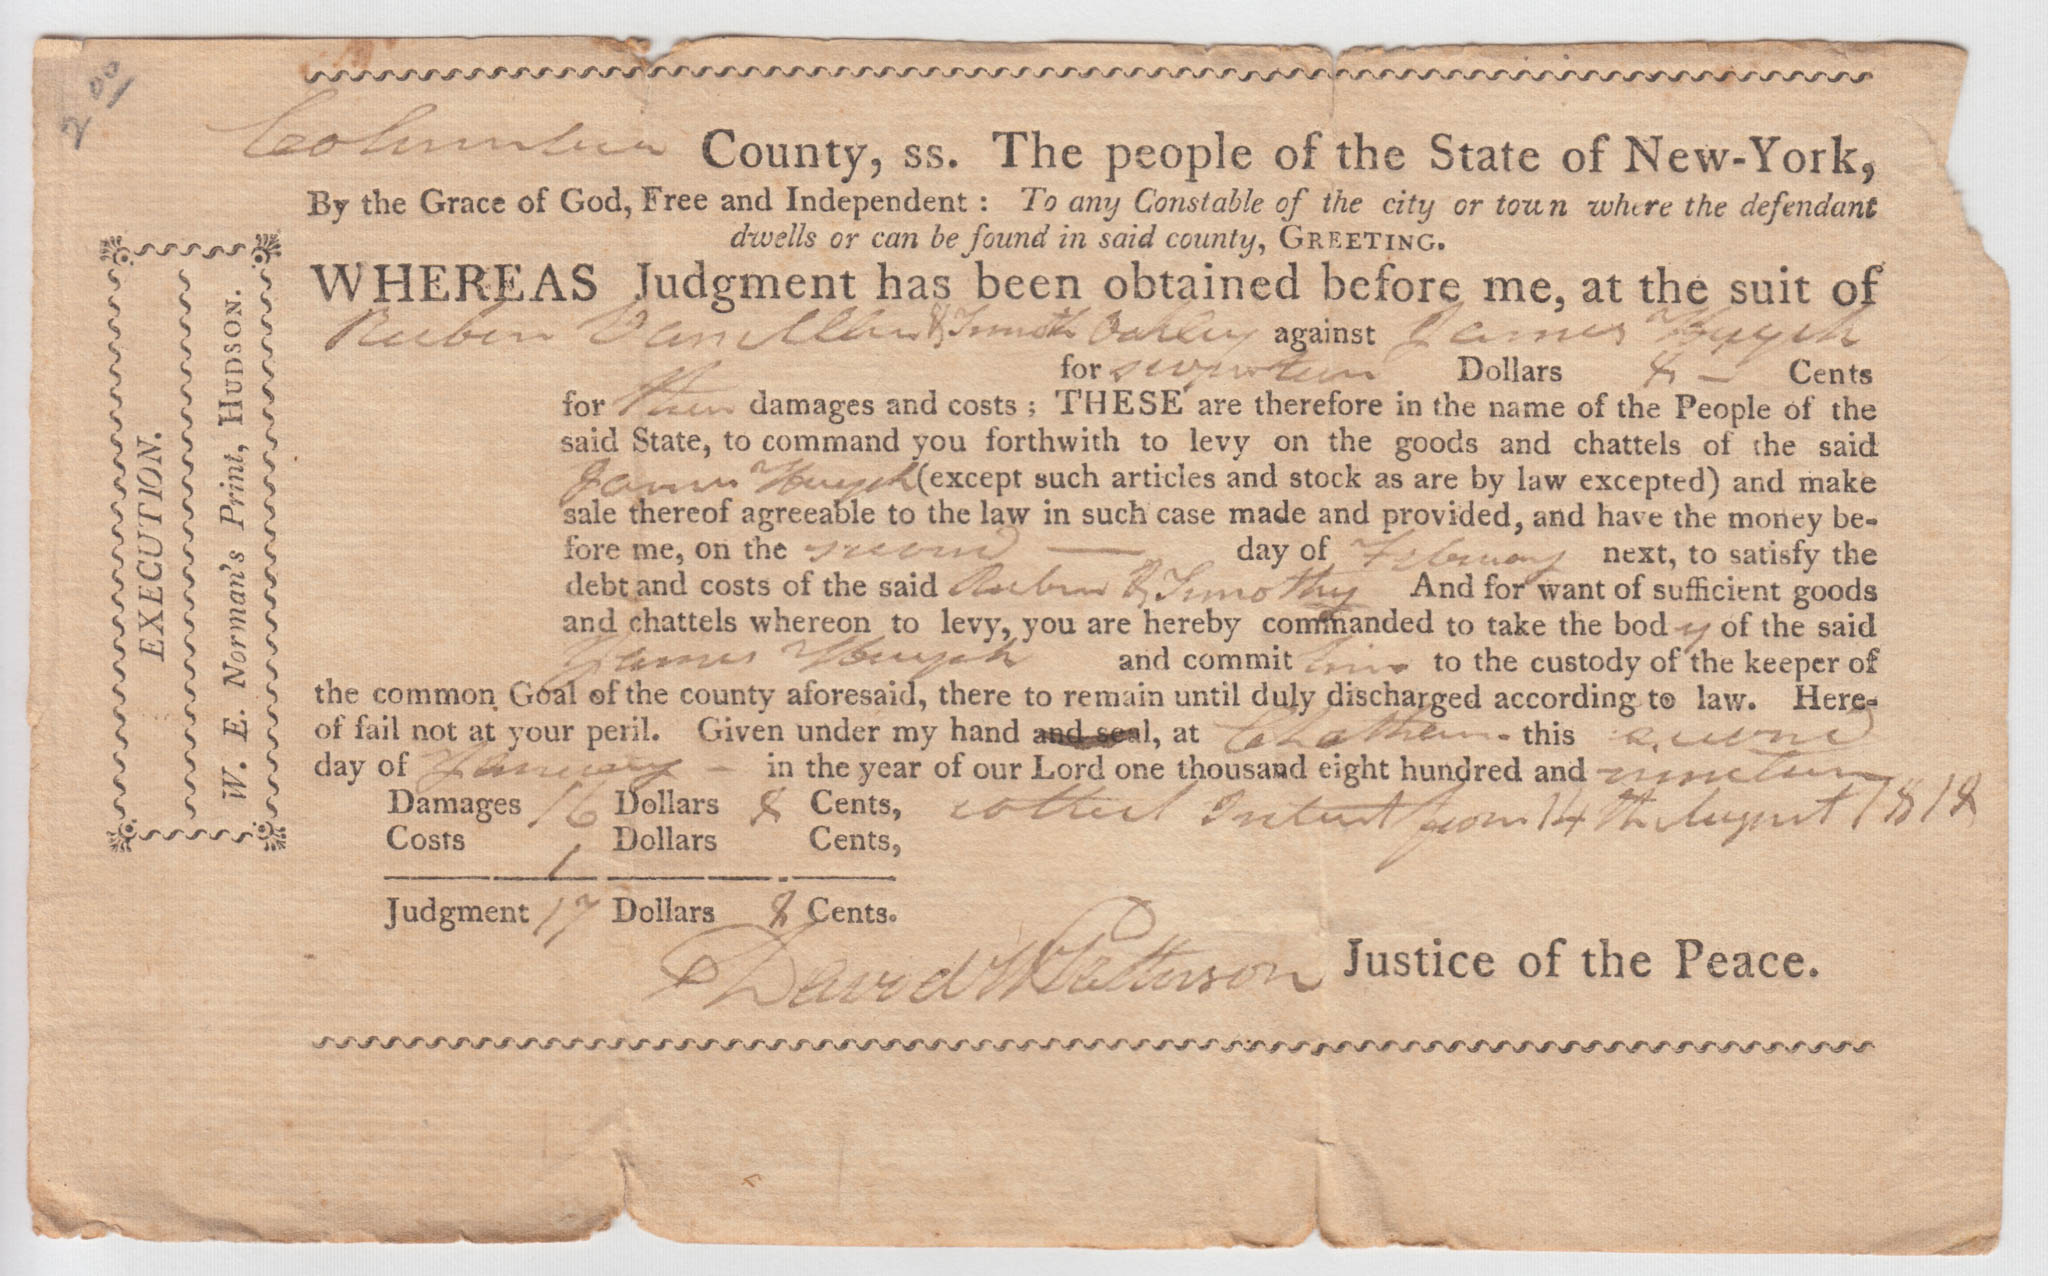 2 00/
Columbia County, ss. The people of the State of New-York,
By the Grace of God, Free and Independent : To any Constable of the city or town where the defendant
dwells or can be found in said county, GREETING.
WHEREAS Judgment has been obtained before me, at the suit of
Reuben Van Allen & Timoth Oakley against James Huyck
for seventeen Dollars & — Cents
for their damages and costs ; THESE are therefore in the name of the People of the
said State, to command you forthwith to levy on the goods and chattels of the said
James Huyck (except such articles and stock as are by law excepted) and make
sale thereof agreeable to the law in such case made and provided, and have the money be-
fore me, on the second — day of February next, to satisfy the
debt and costs of the said Reuben & Timothy And for want of sufficient goods
and chattels whereon to levy, you are hereby commanded to take the body of the said
James Huyck and commit him to the custody of the keeper of
the common Goal of the county aforesaid, there to remain until duly discharged according to law. Here-
of fail not at your peril. Given under my hand and seal, at Chatham this second
day of January — in the year of our Lord one thousand eight hundred and nineteen
Damages 16 Dollars Cents, collect Interest from 14th August 1818
Costs 1 Dollars Cents,
Judgment 17 Dollars Cents.
David W Patterson Justice of the Peace.
EXECUTION.
W. E. Norman's Print, HUDSON.